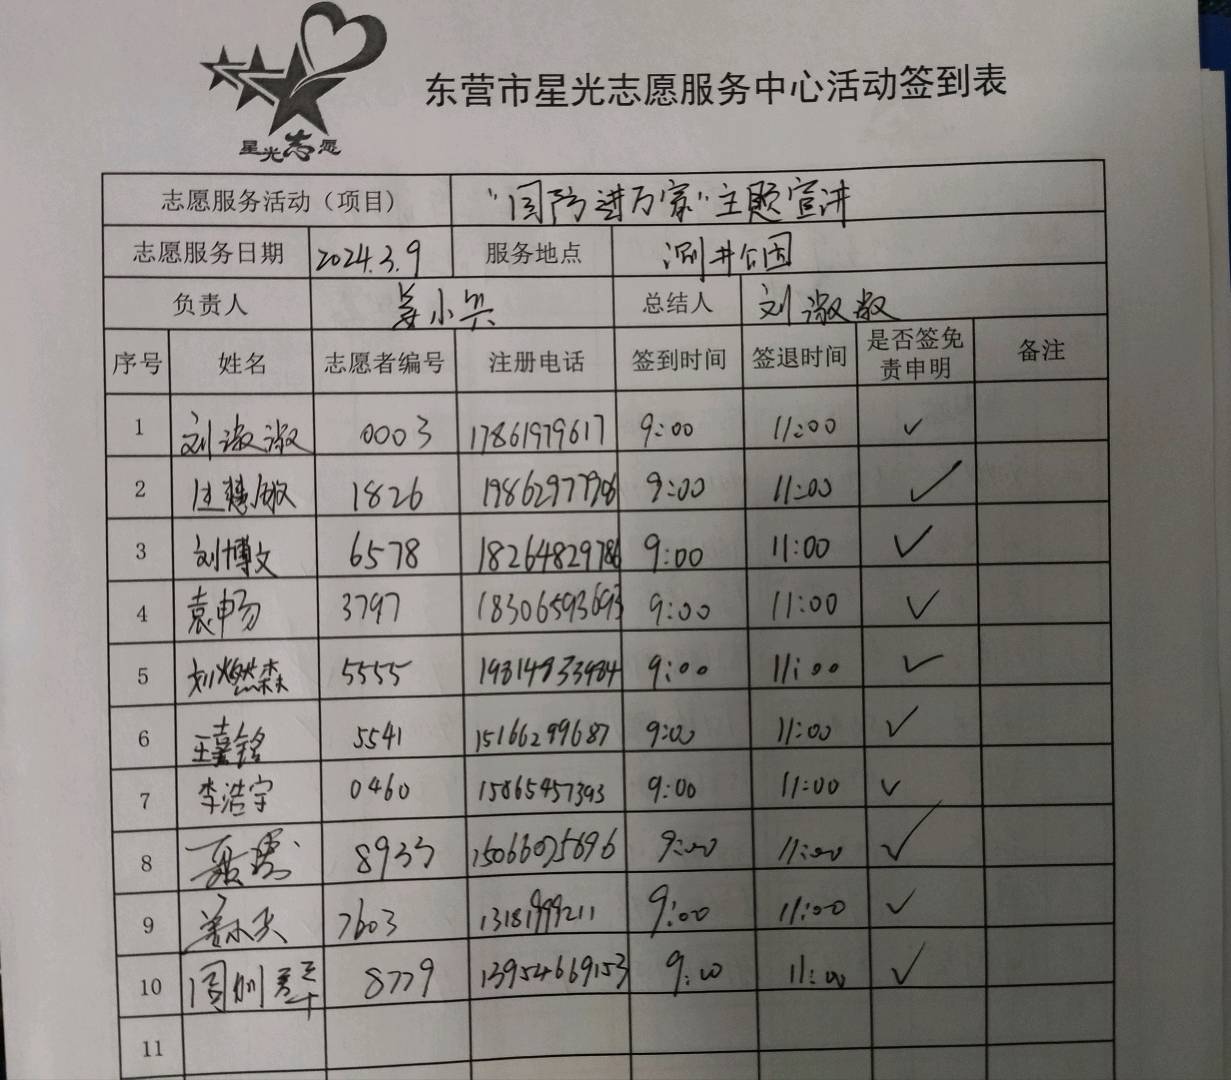 星光志愿
东营市星光志愿服务中心活动签到表
志愿服务活动（项目） “国防进万家”主题宣讲
志愿服务日期 2024.3.9 服务地点
负责人 姜小兴 总结人 刘淑淑
序号 姓名 志愿者编号 注册电话 签到时间 签退时间 是否签免责申明 备注
1 刘淑淑 0003 17861979617 9:00 11:00 ✓
2 1826 9:00 11:00 ✓
3 刘博文 6578 18264829786 9:00 11:00 ✓
4 袁畅 3797 18306593693 9:00 11:00 ✓
5 刘燃森 5555 19814833984 9:00 11:00 ✓
6 王嘉铭 5541 15166299687 9:00 11:00 ✓
7 李浩宇 0460 15865457393 9:00 11:00 ✓
8 8933 15066075696 9:00 11:00 ✓
9 7603 13181999211 9:00 11:00 ✓
10 8779 13954669153 9:00 11:00 ✓
11